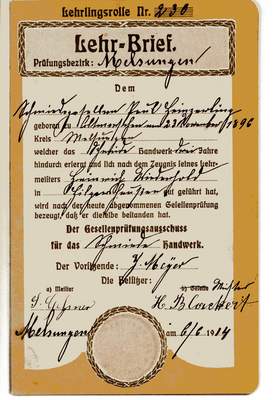 Lehrlingsrolle Nr. 230
Lehr-Brief.
Prüfungsbezirk: Melsungen
Dem
Schmiedegesellen Paul Heinzerling
geboren zu am 23 November 1896
Kreis Melsungen
welcher das Schmiede Handwerk drei Jahre
hindurch erlernt und sich nach dem Zeugnis seines Lehr-
meisters Heinrich Wiederhold
in gut geführt hat,
wird nach der heute abgenommenen Gesellenprüfung
bezeugt, daß er dieselbe bestanden hat.
Der Gesellenprüfungsausschuss
für das Schmiede Handwerk.
Der Vorsitzende: J. Meyer
Die Beisitzer:
a) Meister b) Geselle Mister
Melsungen am 6/6 1914